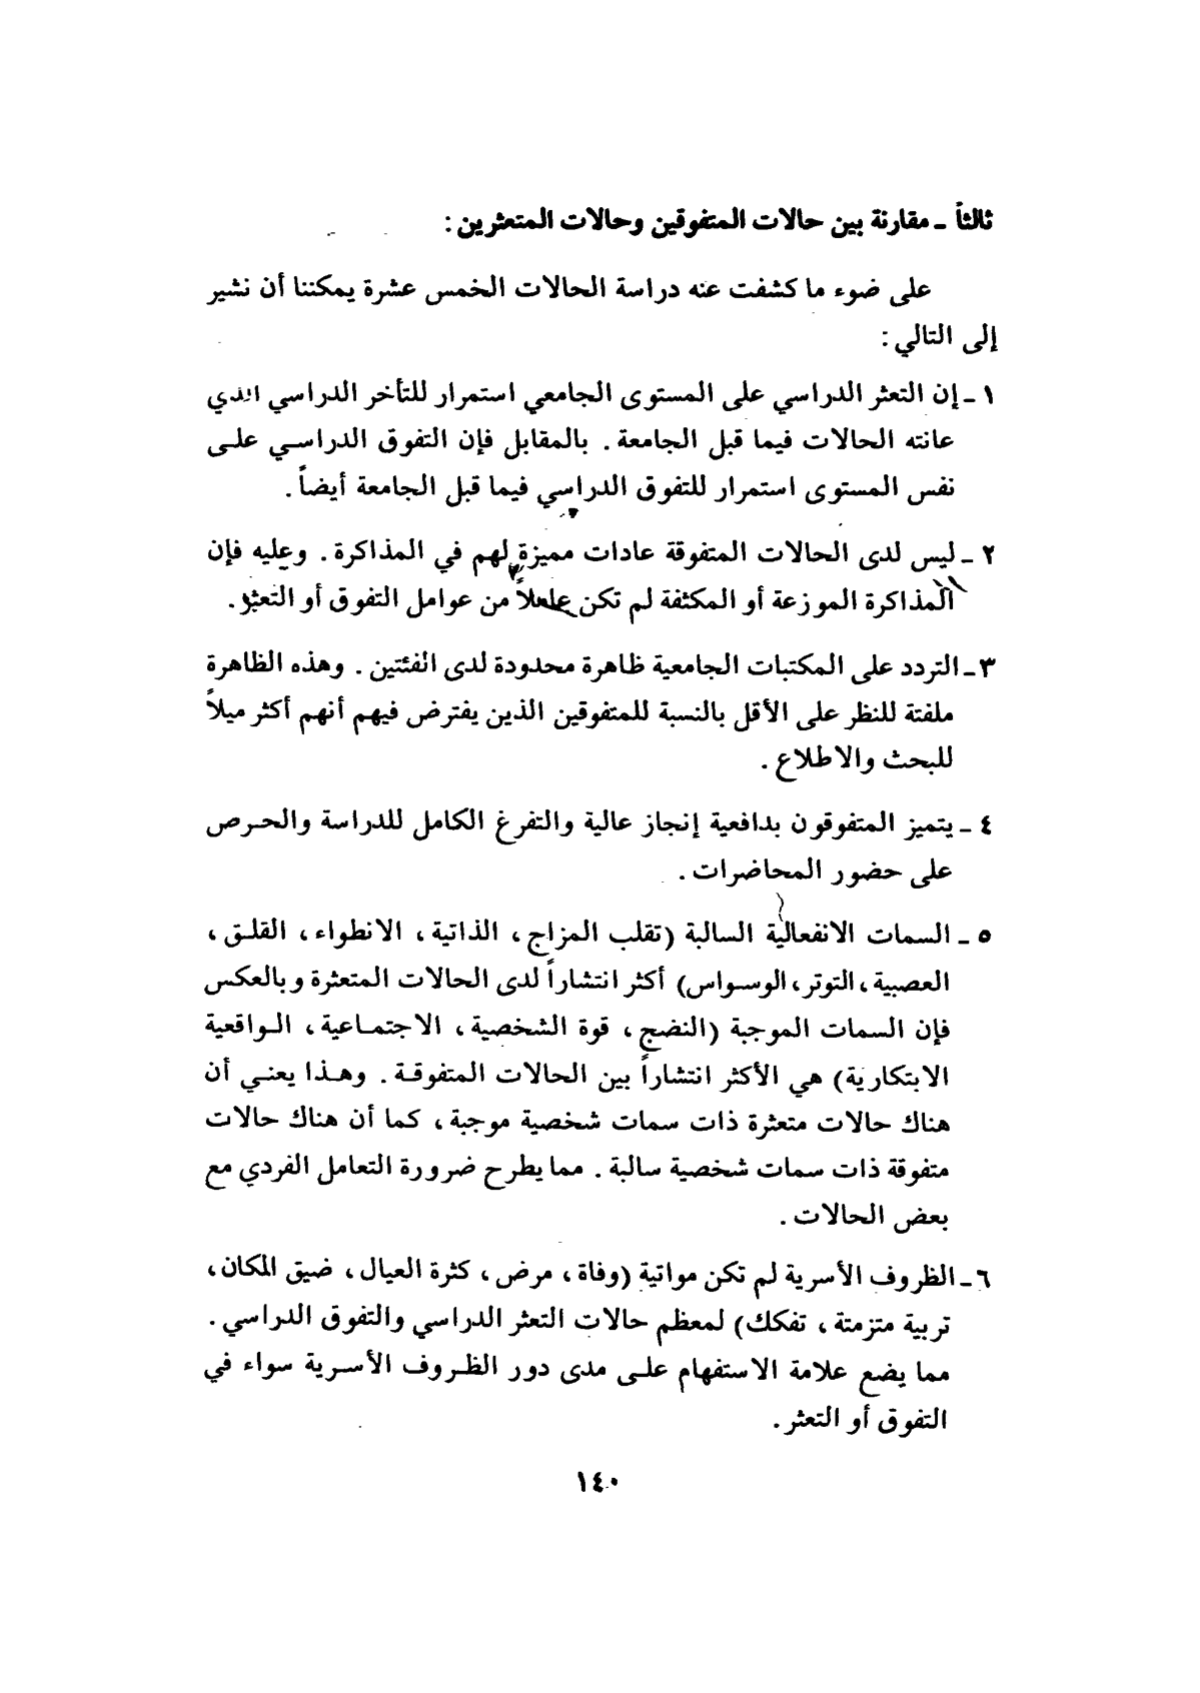 ثالثاً ـ مقارنة بين حالات المتفوقين وحالات المتعثرين :
على ضوء ما كشفت عنه دراسة الحالات الخمس عشرة يمكننا أن نشير
إلى التالي :
١ ـ إن التعثر الدراسي على المستوى الجامعي استمرار للتأخر الدراسي الذي
عانته الحالات فيما قبل الجامعة . بالمقابل فإن التفوق الدراسي على
نفس المستوى استمرار للتفوق الدراسي فيما قبل الجامعة أيضاً .
٢ ـ ليس لدى الحالات المتفوقة عادات مميزة لهم في المذاكرة . وعليه فإن
المذاكرة الموزعة أو المكثفة لم تكن عاملاً من عوامل التفوق أو التعثر .
٣ ـ التردد على المكتبات الجامعية ظاهرة محدودة لدى الفئتين . وهذه الظاهرة
ملفتة للنظر على الأقل بالنسبة للمتفوقين الذين يفترض فيهم أنهم أكثر ميلاً
للبحث والاطلاع .
٤ ـ يتميز المتفوقون بدافعية إنجاز عالية والتفرغ الكامل للدراسة والحرص
على حضور المحاضرات .
٥ ـ السمات الانفعالية السالبة (تقلب المزاج ، الذاتية ، الانطواء ، القلق ،
العصبية ، التوتر ، الوسواس) أكثر انتشاراً لدى الحالات المتعثرة وبالعكس
فإن السمات الموجبة (النضج ، قوة الشخصية ، الاجتماعية ، الواقعية
الابتكارية) هي الأكثر انتشاراً بين الحالات المتفوقة . وهذا يعني أن
هناك حالات متعثرة ذات سمات شخصية موجبة ، كما أن هناك حالات
متفوقة ذات سمات شخصية سالبة . مما يطرح ضرورة التعامل الفردي مع
بعض الحالات .
٦ ـ الظروف الأسرية لم تكن مواتية (وفاة ، مرض ، كثرة العيال ، ضيق المكان ،
تربية متزمتة ، تفكك) لمعظم حالات التعثر الدراسي والتفوق الدراسي .
مما يضع علامة الاستفهام على مدى دور الظروف الأسرية سواء في
التفوق أو التعثر .
١٤٠